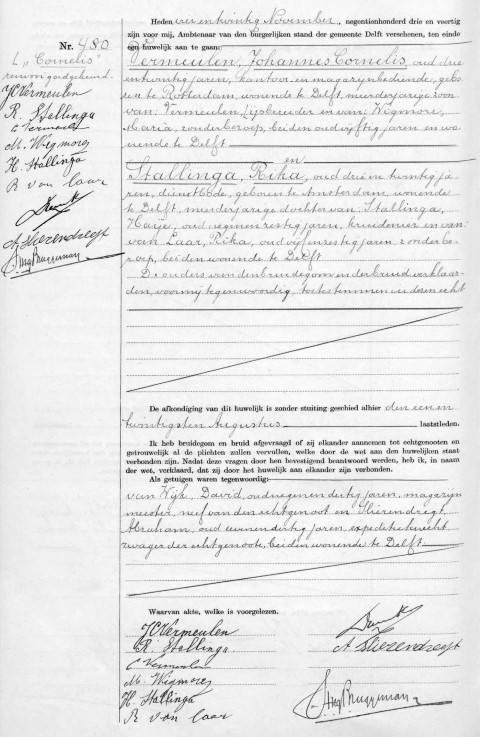 Nr. 480
L „Cornelis”
JCVermeulen
R. Stallinga
C Vermeulen
M. Wigmore
H. Stallinga
R van Laar
A Slierendregt
Heden november, negentienhonderd drie en veertig
zijn voor mij, Ambtenaar van den burgerlijken stand der gemeente Delft verschenen, ten einde
een huwelijk aan te gaan:
Vermeulen, Johannes Cornelis, oud drie
entwintig jaren, kantoor en magazijnbediende, gebo
ren te Rotterdam, wonende te Delft, meerderjarige zoon
van: Vermeulen, ijsbereider en van: Wigmore,
Maria, zonder beroep, beiden oud vijftig jaren en wo
nende te Delft
en
Stallinga, Rika, oud drie en twintig ja
ren, dienstbode, geboren te Amsterdam, wonende
te Delft, meerderjarige dochter van: Stallinga,
oud negen en zestig jaren, kruidenier en van:
van Laar, Rika, oud vijf en zestig jaren, zonder be
roep, beiden wonende te Delft
De ouders van den bruidegom en de bruid verklaar
den, voor mij tegenwoordig, toe te stemmen in dezen echt
De afkondiging van dit huwelijk is zonder stuiting geschied alhier den een en
twintigsten Augustus laatstleden.
Ik heb bruidegom en bruid afgevraagd of zij elkander aannemen tot echtgenooten en
getrouwelijk al de plichten zullen vervullen, welke door de wet aan den huwelijken staat
verbonden zijn. Nadat deze vragen door hen bevestigend beantwoord werden, heb ik, in naam
der wet, verklaard, dat zij door het huwelijk aan elkander zijn verbonden.
Als getuigen waren tegenwoordig:
van Wijk, David, oud negen en dertig jaren, magazijn
meester, neef van den echtgenoot en Slierendregt,
Abraham, oud dertig jaren, expeditieknecht
zwager der echtgenoote, beiden wonende te Delft
Waarvan akte, welke is voorgelezen.
JCVermeulen
R. Stallinga
C Vermeulen
M. Wigmore
H. Stallinga
R van Laar
A Slierendregt